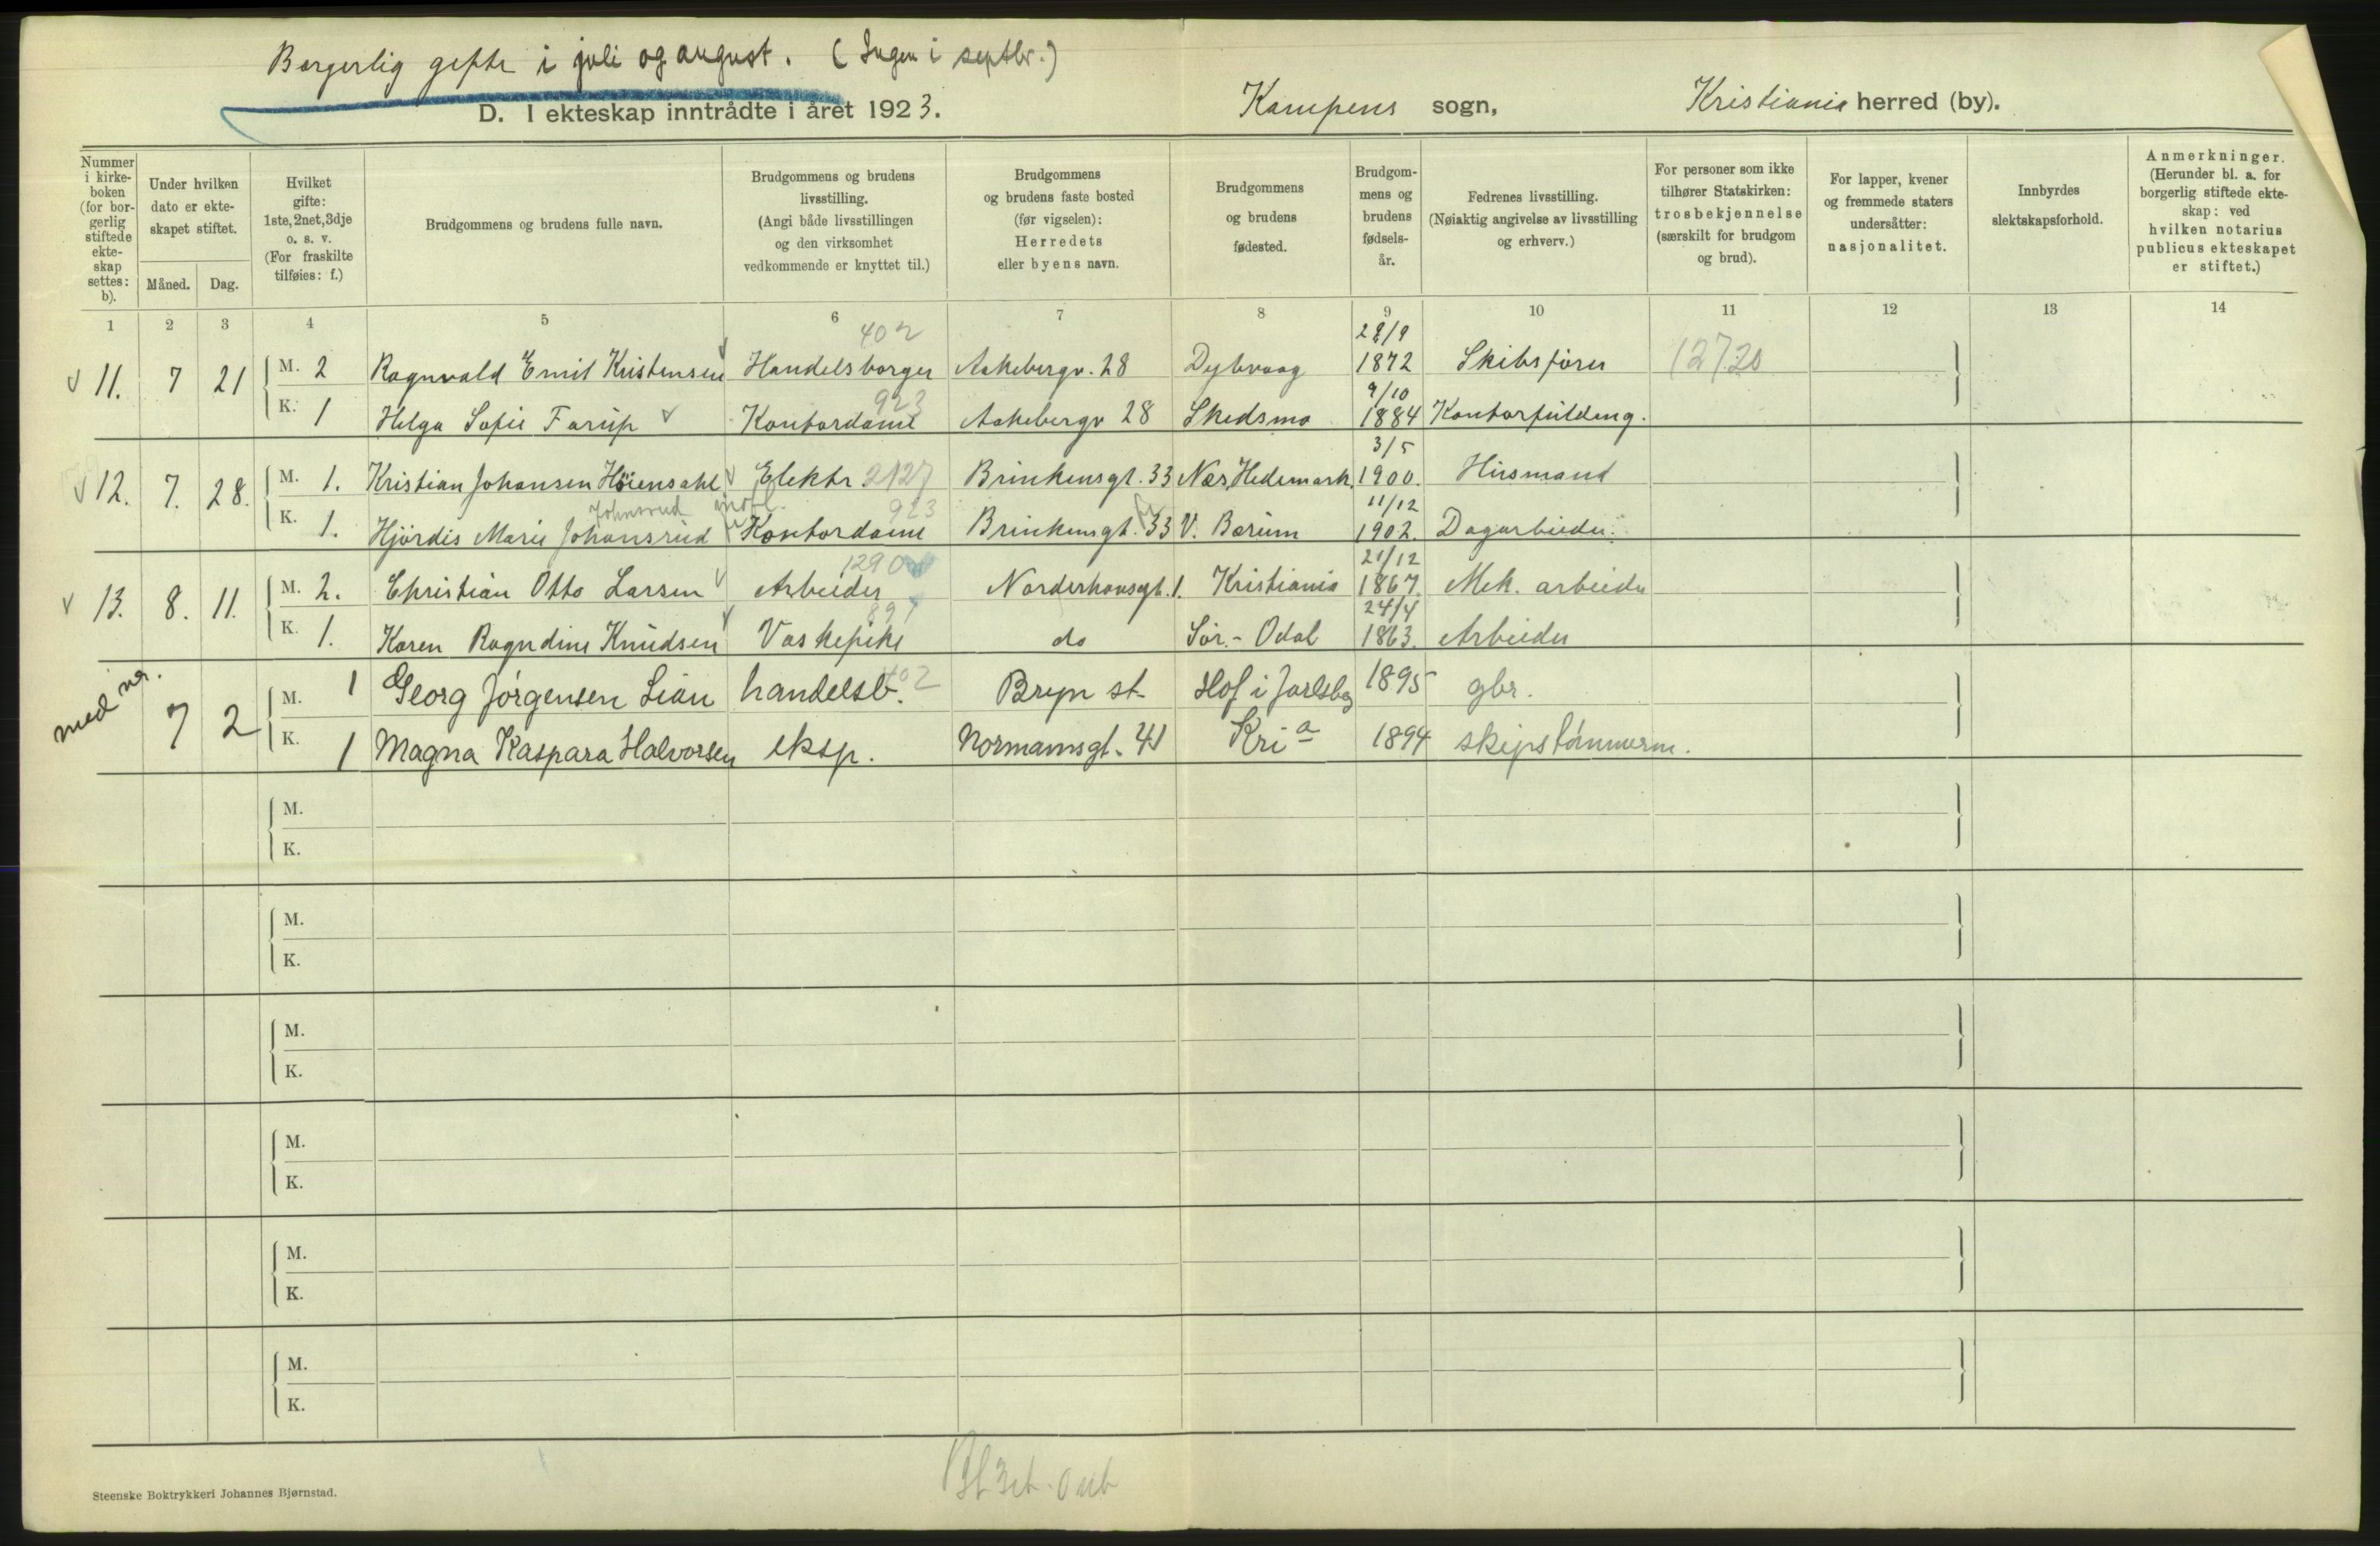 Borgerlig gifte i juli og august. (Ingen i septbr.)
D. I ekteskap inntrådte i året 1923. Kampens sogn, Kristiania herred (by).
Nummer i kirkeboken (for borgerlig stiftede ekteskap settes: b).
Under hvilken dato er ekteskapet stiftet.
Måned. Dag.
Hvilket gifte: 1ste, 2net, 3dje o. s. v. (For fraskilte tilføies: f.)
Brudgommens og brudens fulle navn.
Brudgommens og brudens livsstilling. (Angi både livsstillingen og den virksomhet vedkommende er knyttet til.)
Brudgommens og brudens faste bosted (før vigselen): Herredets eller byens navn.
Brudgommens og brudens fødested.
Brudgommens og brudens fødselsår.
Fedrenes livsstilling. (Nøiaktig angivelse av livsstilling og erhverv.)
For personer som ikke tilhører Statskirken: trosbekjennelse (særskilt for brudgom og brud).
For lapper, kvener og fremmede staters undersåtter: nasjonalitet.
Innbyrdes slektskapsforhold.
Anmerkninger. (Herunder bl. a. for borgerlig stiftede ekteskap: ved hvilken notarius publicus ekteskapet er stiftet.)
1 2 3 4 5 6 7 8 9 10 11 12 13 14
402 28/9
11. 7 21 M. 2 Ragnvald Emil Kristensen Handelsborger Aakebergv. 28 Dybvaag 1872 Skibsfører 12720
923 9/10
K. 1 Helga Sofie Farup Kontordame Aakebergv 28 Skedsmo 1884 Kontorfuldmg.
3/5
12. 7. 28. M. 1. Kristian Johansen Höiensahl Elektr. 2127 Brinkensgt. 33 Nes, Hedemark. 1900. Husmand
Johnsrud 923 11/12
K. 1. Hjördis Marie Johansrud Kontordame Brinkensgt. 33 V. Bærum 1902. Dagarbeider.
1290 21/12
13. 8. 11. M. 2. Christian Otto Larsen Arbeider Norderhovsgt. 1. Kristiania 1867. Mek. arbeider
897 24/4
K. 1. Karen Ragndine Knudsen Vaskepike do Sör.-Odal 1863. Arbeider
med nr.
7 2 M. 1 Georg Jörgensen Lian handelsb. 402 Bryn st. Hof i Jarlsbg 1895 gbr.
K. 1 Magna Kaspara Halvorsen eksp. Normannsgt. 41 Kri a 1894 skipstömmerm.
M.
K.
M.
K.
M.
K.
M.
K.
M.
K.
M.
K.
Steenske Boktrykkeri Johannes Bjørnstad.